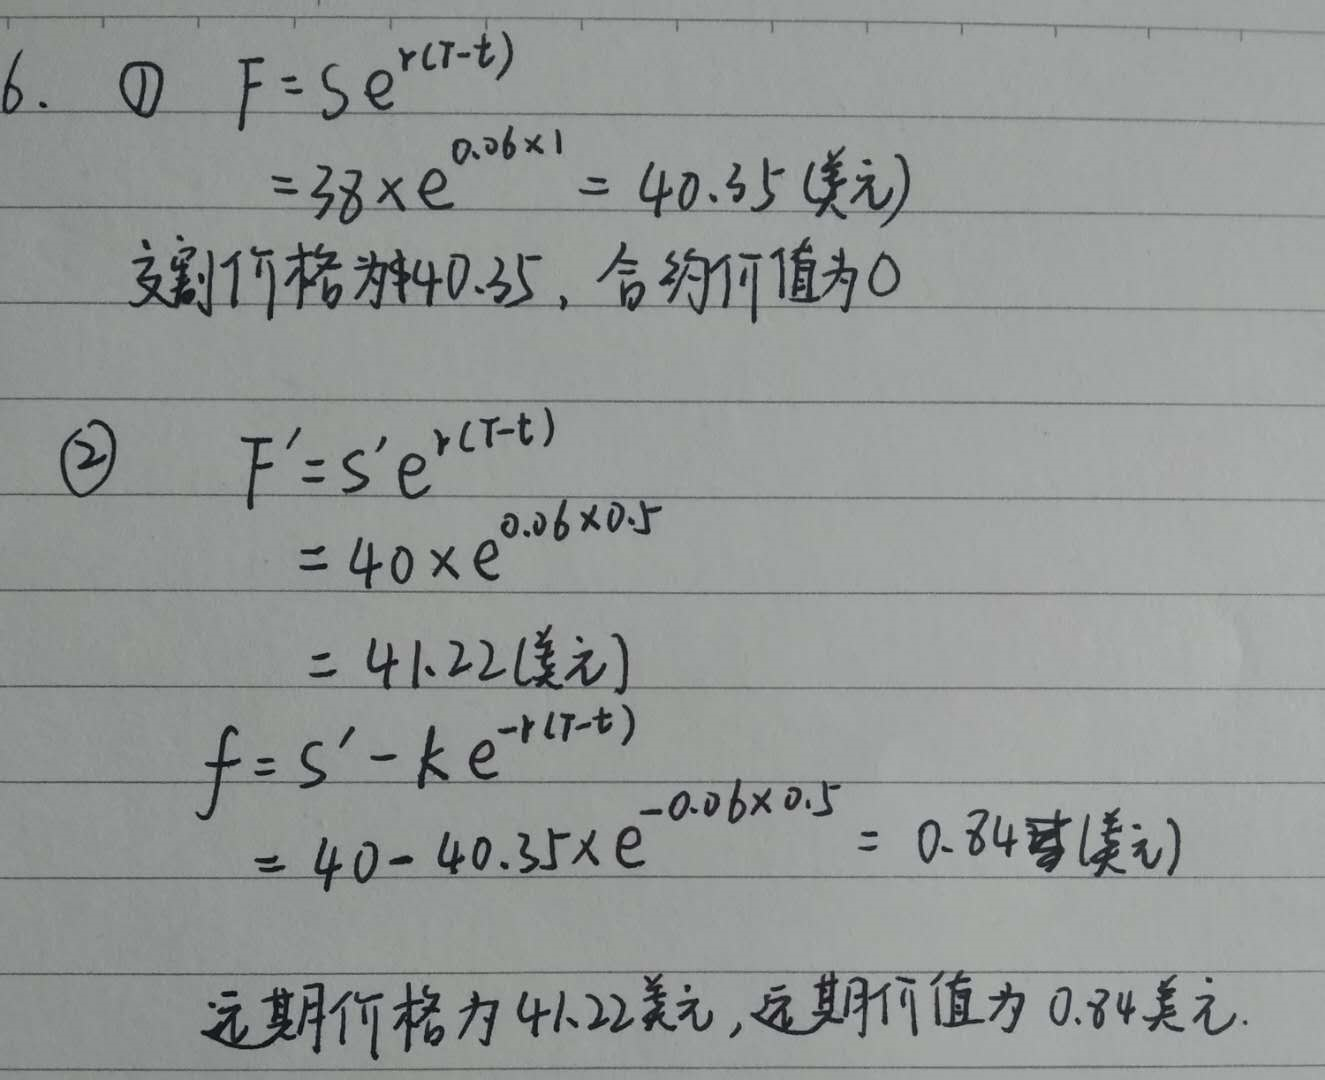 6. ① F=Se^{r(T-t)}
=38×e^{0.06×1} = 40.35(美元)
交割价格为$40.35, 合约价值为0
② F'=S'e^{r(T-t)}
=40×e^{0.06×0.5}
=41.22(美元)
f=S'-ke^{-r(T-t)}
=40-40.35×e^{-0.06×0.5} = 0.84(美元)
远期价格为41.22美元,远期价值为0.84美元.